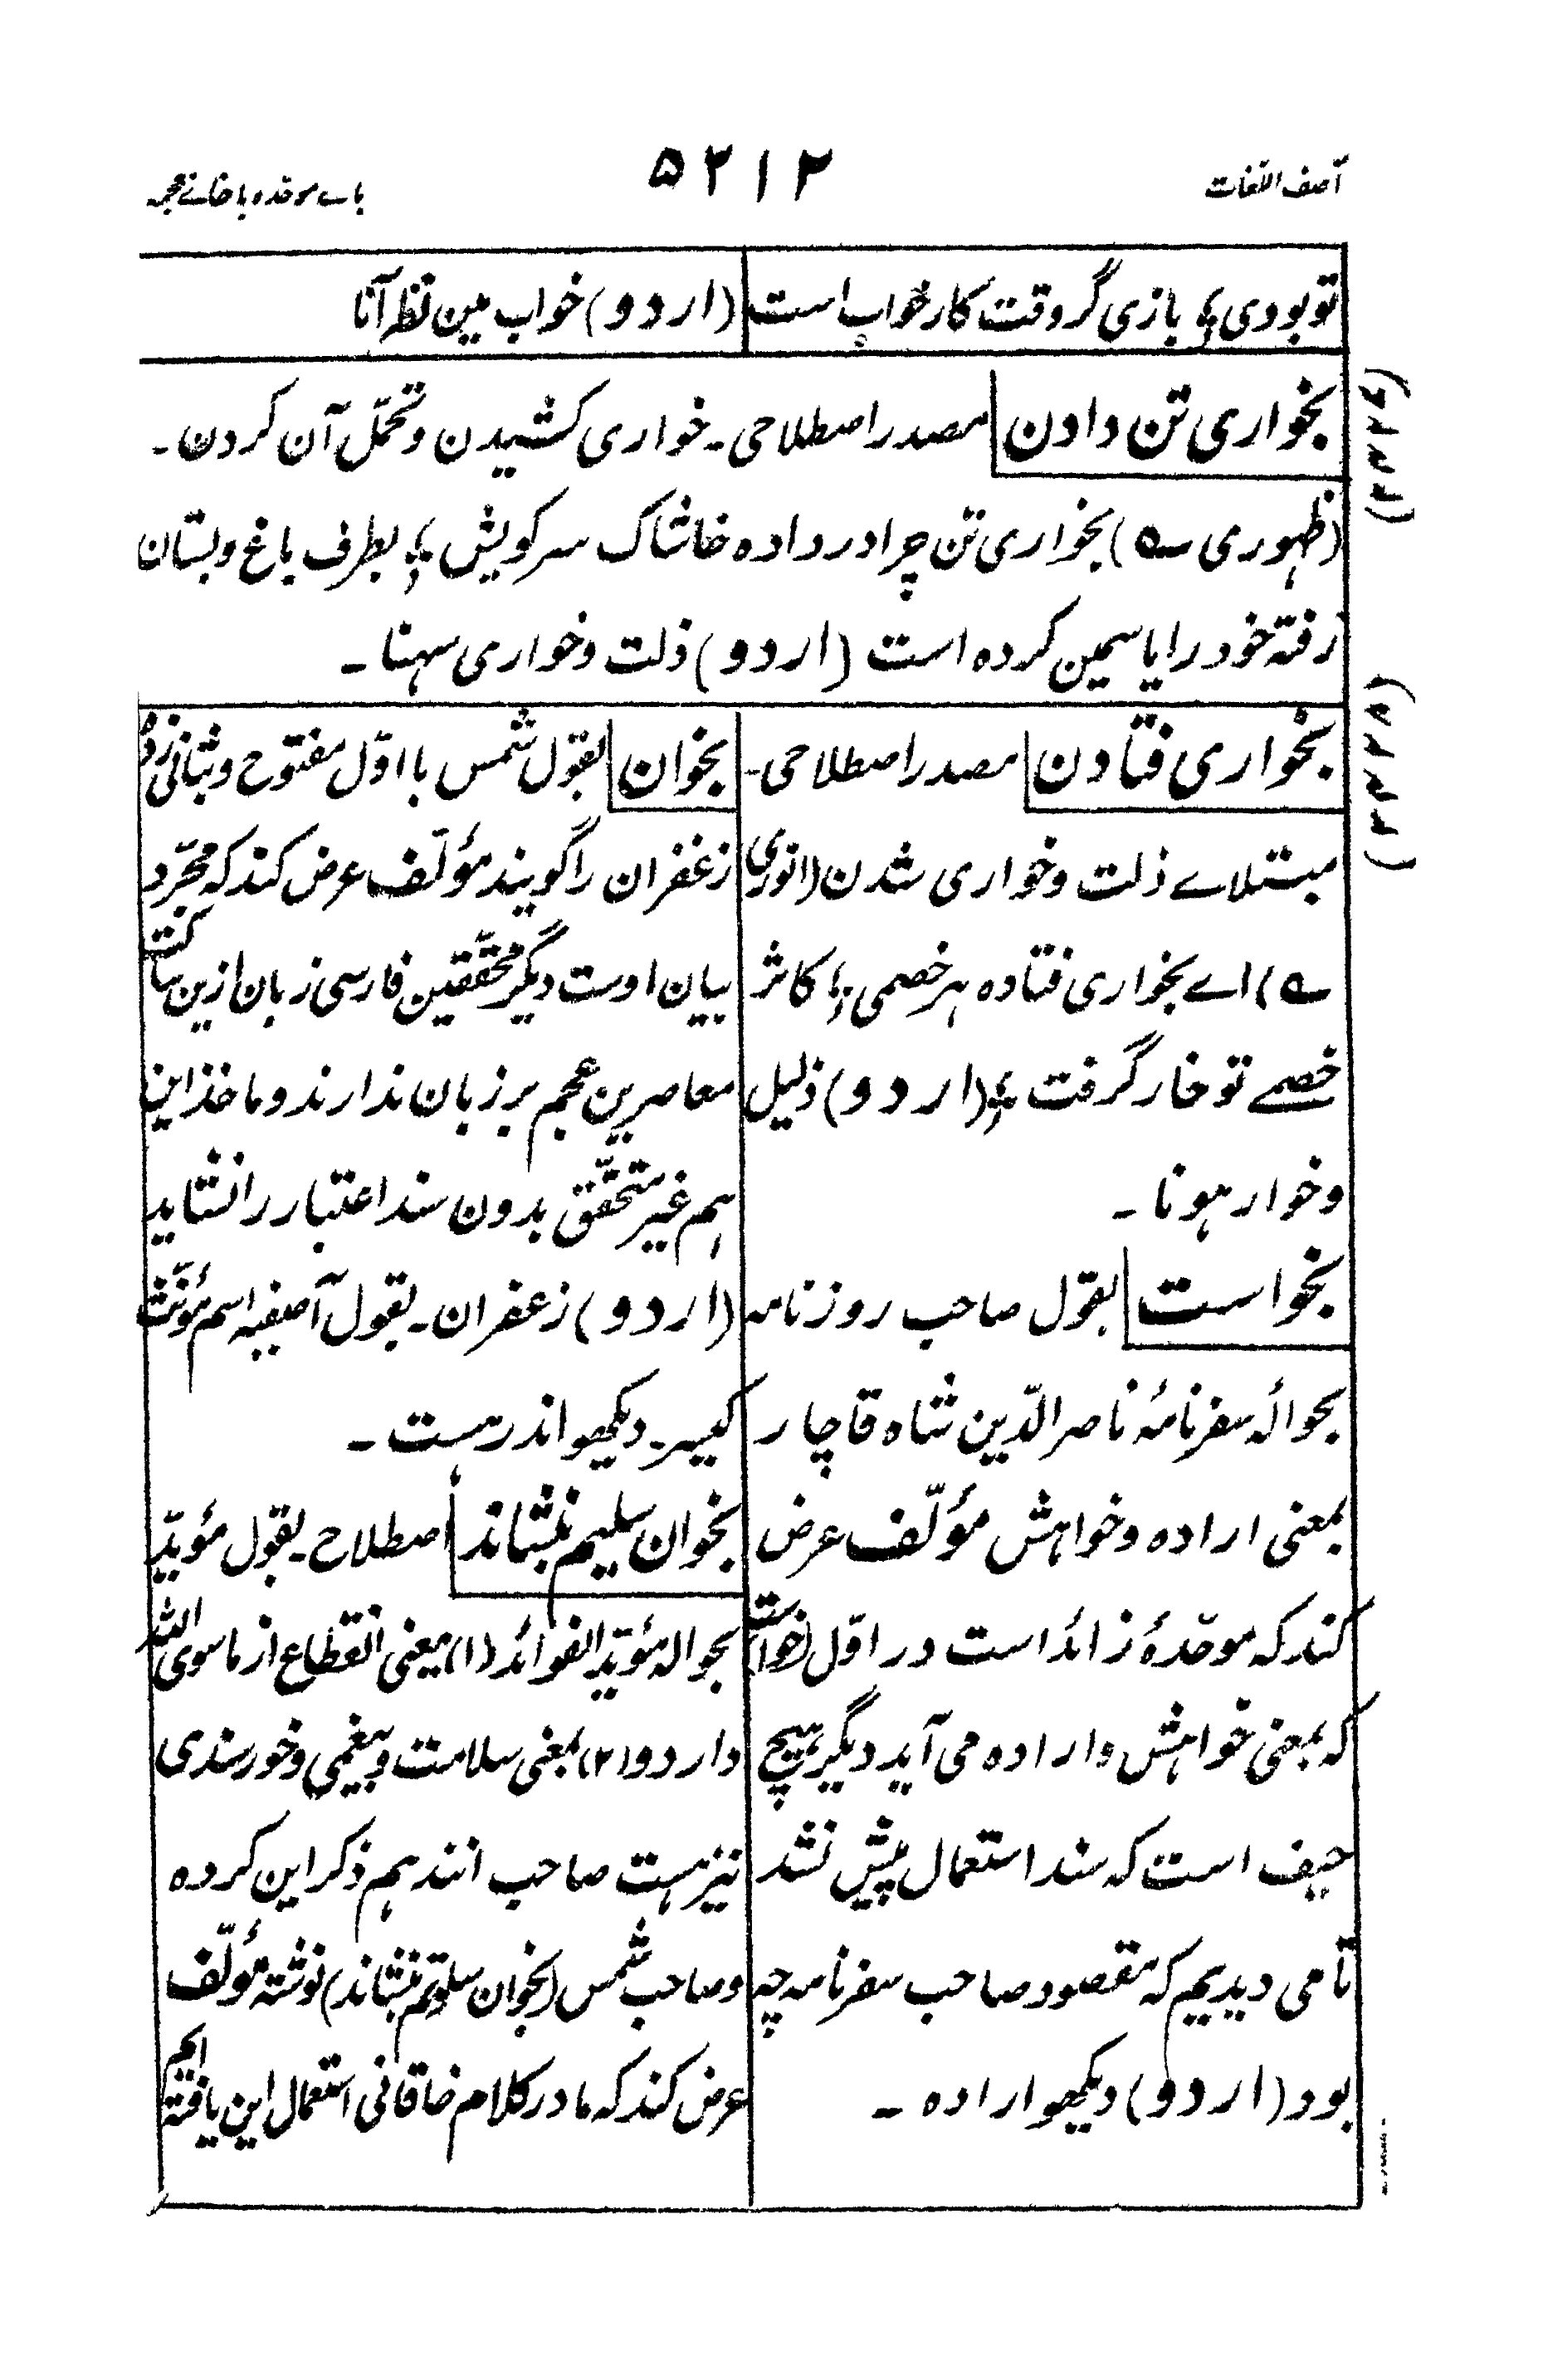 آصف اللغات
۵۲۱۲
باے موحدہ باخاے معجمہ
تو بودی ؛ بازی گر وقت کار خواب است (اردو) خواب مین نظر آنا
بخواری تن دادن مصدر اصطلاحی ۔ خواری کشیدن و تحمّل آن کردن ۔
(ظہوری ؎) بخواری تن چرا در داده خاشاک سر کویش ؛ بطرف باغ و بستان
رفتہ خود را یاسمین کرده است (اردو) ذلت و خواری سہنا ۔
بخواری فتادن مصدر اصطلاحی ۔
مبتلاے ذلت و خواری شدن (انوری
؎) اے بخواری فتاده ہر خصمی ؛ کاثر
خصمے تو خار گرفت ؛ (اردو) ذلیل
و خوار ہونا ۔
بخواست بقول صاحب روزنامہ
بحوالۂ سفرنامۂ ناصر الدّین شاه قاچار
بمعنی اراده و خواہش مؤلّف عرض
کند کہ موحّدۂ زائد است در اوّل (خواست)
کہ بمعنی خواہش و اراده می آید دیگر ہیچ
حیف است کہ سند استعمال پیش نشد
تا می دیدیم کہ مقصود صاحب سفرنامہ چہ
بود (اردو) دیکھو اراده ۔
بخوان بقول شمس با اوّل مفتوح و بثانی زده
زعفران را گویند مؤلّف عرض کند کہ مجرّد
بیان اوست دیگر محقّقین فارسی زبان ازین ساکت
معاصرین عجم بر زبان ندارند و ماخذ این
ہم غیر متحقّق بدون سند اعتبار را نشاید
(اردو) زعفران ۔ بقول آصفیہ اسم مؤنّث
کیسر ۔ دیکھو اندر ہست ۔
بخوان سلیم بنشاند اصطلاح ۔ بقول مؤیّد
بحوالہ مؤیّد الفوائد (۱) بمعنی انقطاع از ماسوی اللہ
دارد و (۲) بمعنی سلامت و بیغمی و خورسندی
نیز ہست صاحب انند ہم ذکر این کرده
و صاحب شمس (بخوان سلوتم بنشاند) نوشتہ مؤلّف
عرض کند کہ ما در کلام خاقانی استعمال این یافتہ ایم